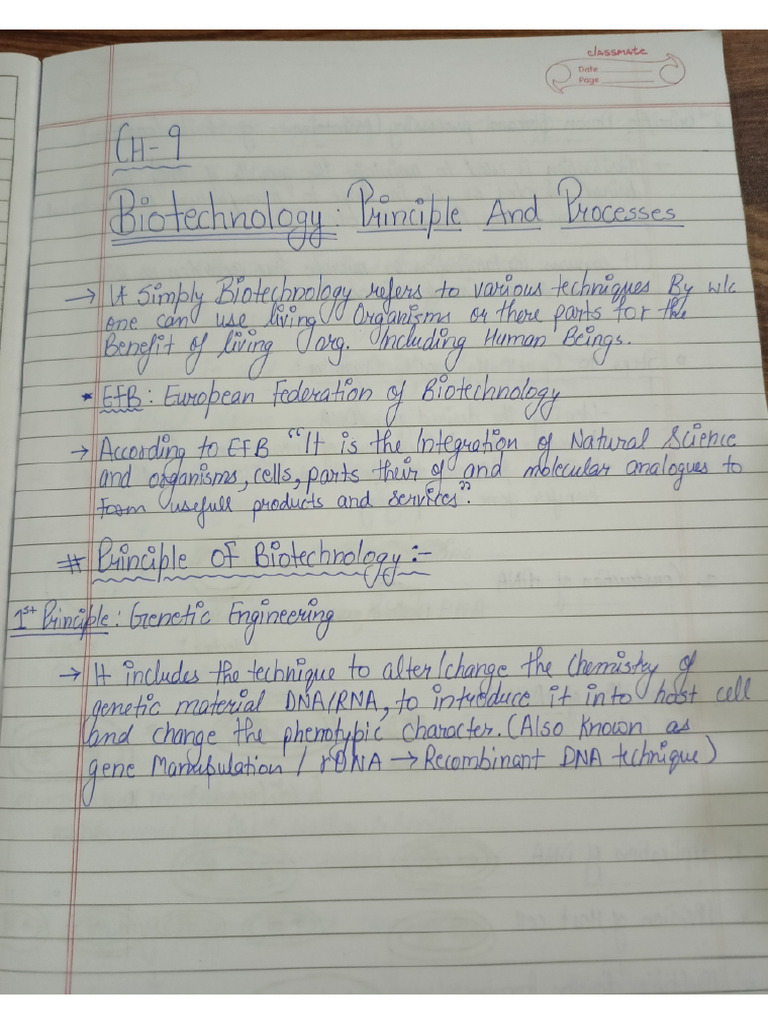 classmate
Date
Page
CH-9
Biotechnology: Principle And Processes
→ It Simply Biotechnology refers to various techniques By wlc
one can use living Organisms or there parts for the
Benefit of living org. Including Human Beings.
* EFB: European Federation of Biotechnology
→ According to EFB “It is the Integration of Natural Science
and organisms, cells, parts their of and molecular analogues to
form usefull products and services”.
# Principle Of Biotechnology:-
1st Principle: Genetic Engineering
→ It includes the technique to alter/change the Chemistry of
genetic material DNA/RNA, to introduce it into host cell
and change the phenotypic character. (Also Known as
gene Manupulation / rDNA → Recombinant DNA technique)